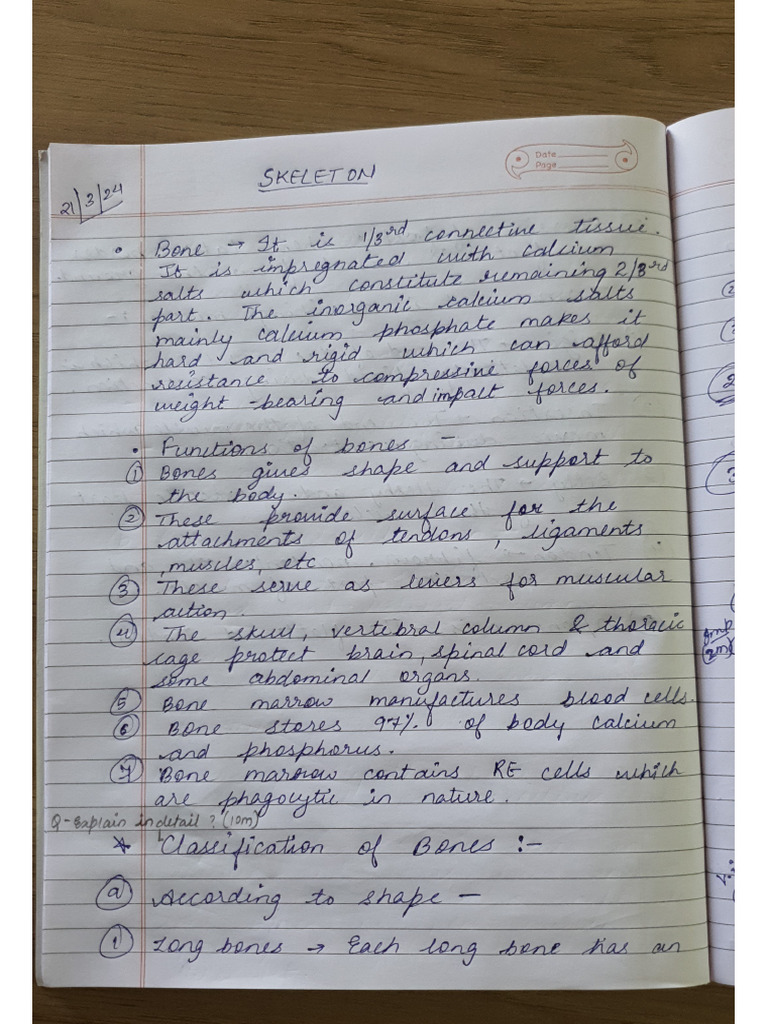 Date
Page
SKELETON
21/3/24
• Bone → It is 1/3rd connective tissue.
It is impregnated with calcium
salts which constitute remaining 2/3rd
part. The inorganic calcium salts
mainly calcium phosphate makes it
hard and rigid which can afford
resistance to compressive forces of
weight-bearing and impact forces.
• Functions of bones -
① Bones gives shape and support to
the body.
② These provide surface for the
attachments of tendons, ligaments
, muscles, etc.
③ These serve as levers for muscular
action.
④ The skull, vertebral column & thoracic
cage protect brain, spinal cord and
some abdominal organs.
⑤ Bone marrow manufactures blood cells.
⑥ Bone stores 97% of body calcium
and phosphorus.
⑦ Bone marrow contains RE cells which
are phagocytic in nature.
Q- Explain in detail? (10m)
* Classification of Bones :-
ⓐ According to shape -
① Long bones → Each long bone has an
Imp
(2m)